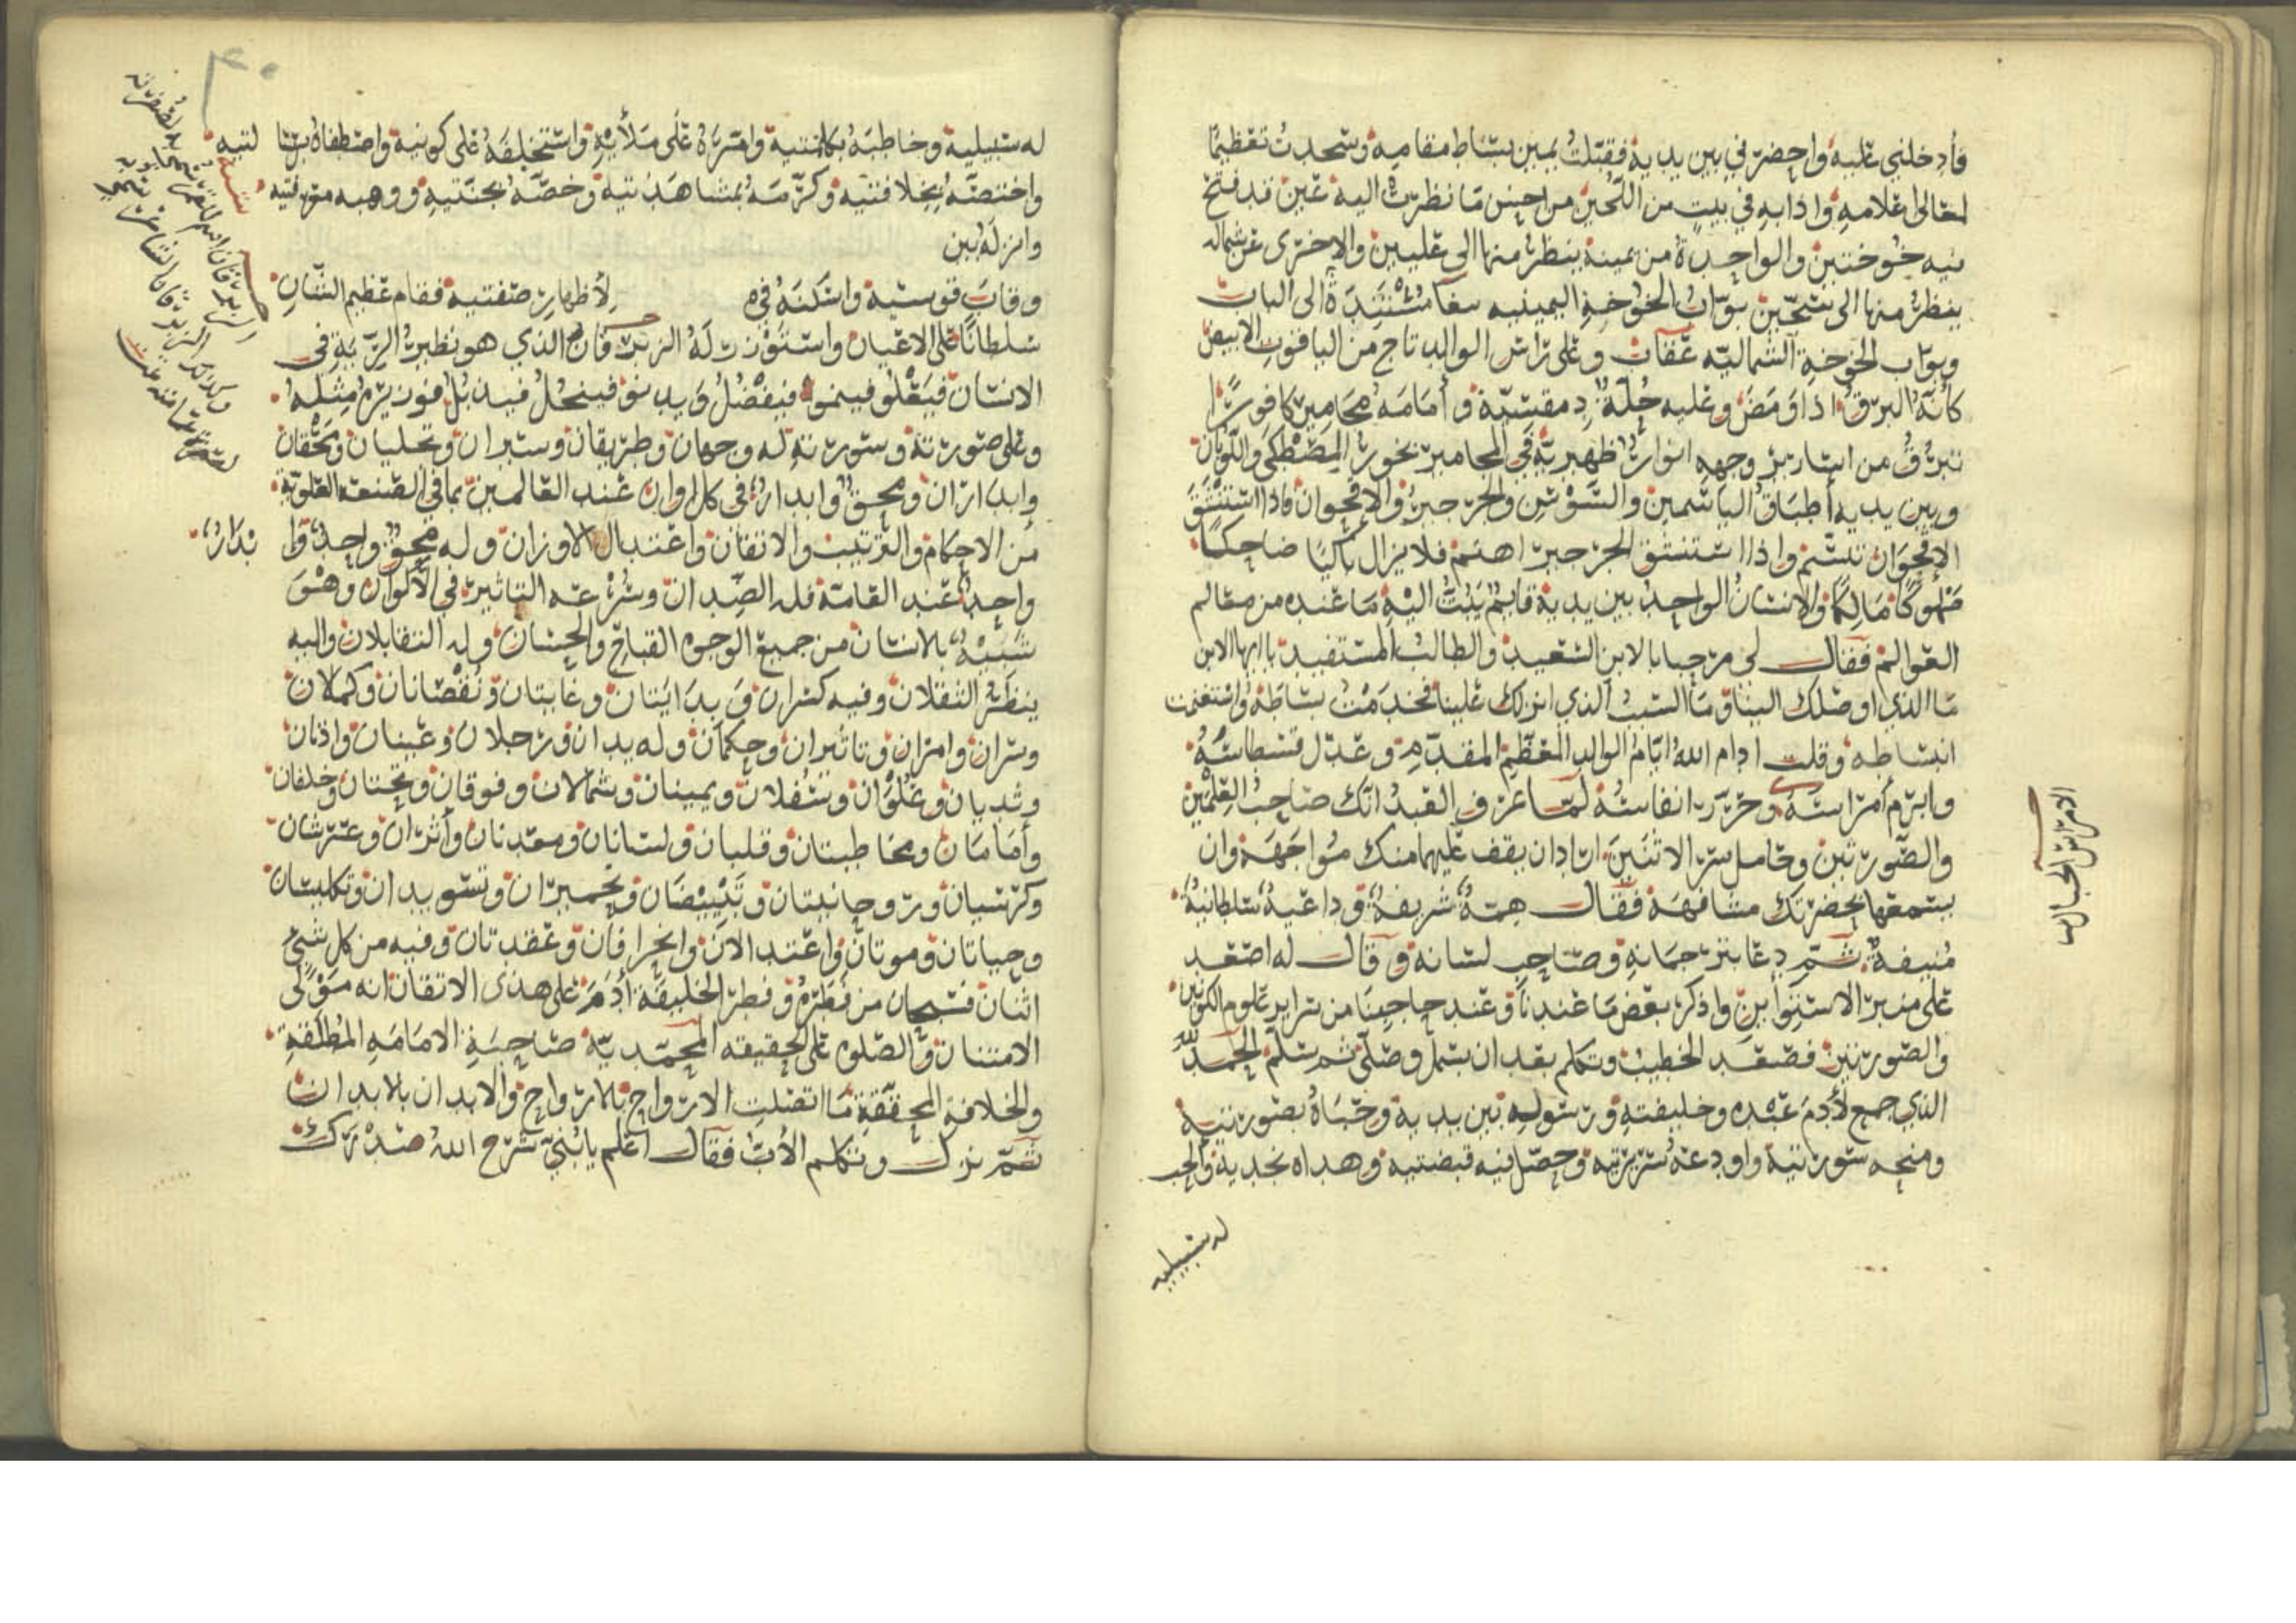 فأدخلني عليه واحضرني بين يديه فقبلت يمين بساط مقامه وسجدت تعظيمًا
لمعالي اعلامه واذا به في بيت من اللجين من احسن ما نظرت اليه عين قد فتح
فيه خوختين والواحدة من يمينه ينظر منها الى عليين والاخرى عن شماله
ينظر منها الى سجين بواب الخوخة اليمينيه مستندة الى الباب
وبواب الخوخة الشماليه عقاب وعلى راس الوالد تاج من الياقوت الابيض
كأنه البرق اذا ومض وعليه حلة دمقسية وأمامه مجامير كافورًا
تبرق من اسارير وجهه انوار ظهيرية في المجامير بخور المصطكى واللوبان
وبين يديه أطباق الياسمين والسوسن والجرجير والاقحوان فاذا استنشق
الاقحوان تبسم واذا استنشق الجرجير اهتم فلا يزال باكيًا ضاحكًا
مملوكًا مالكًا والانسان الواحد بين يديه قايم يبث اليه ما عنده من معالم
العوالم فقال لي مرحبا بالابن السعيد والطالب المستفيد ياايها الابن
ما الذي اوصلك الينا وما السبب الذي انزلك علينا فخدمت بساطه واستغنمت
انبساطه وقلت ادام الله ايام الوالد المعظم المقدم وعدل قسطاسه
وابرم أمراسه وحرر انفاسه لما عرف العبد انك صاحب العلمين
والصورتين وحامل سر الاثنين اراد ان يقف عليها منك مواجهة وان
يسمعها بحضرتك مشافهة فقال همة شريفة وداعية سلطانية
منيفة ثم دعا بترجمانه وصاحب لسانه وقال له اصعد
على منبر الاستوا وابن واذكر بعض ما عندنا وعند حاجبنا من سراير علوم الكونين
والصورتين فصعد الخطيب وتكلم بعد ان بسمل وصلى ثم سلم الحمد لله
الذي جمع لأدم عبده وخليفته ورسوله بين يديه وحباه بصورتيه
ومنحه سورتيه واودعه سريرتيه وحصل فيه قبضتيه وهداه نجديه واليه
له سبيليه
الامراس الحبال
له سبيليه وخاطبه بكلمتيه وامره على ملأيه واستخلفه على كونيه واصطفاه برسا لتيه
واختصه بخلافتيه وكرمه بمشاهدتيه وخصه بجنتيه ووهبه معرفتيه
وانزله بين
وقاب قوسيه واسكنه في لأظهار صفتيه فقام عظيم الشان
سلطانًا على الاعيان واستوزر له الزبرقان الذي هو نظير الرية في
الانسان فيعلو فينمو فيفضل ويدنو فينحل فيذبل فوزيره مثله
وعلى صورته وسورته له وجهان وطريقان وستران وتجليان ومحقان
وابداران ومحق وابدار في كل اوان عند العالمين بما في الصنعة العلوية
من الاحكام والترتيب والاتقان واعتدال الاوزان وله محق واحد وا بدار
واحد عند العامة فله الضدان وسرعة التاثير في الأكوان وهو
شبيه بالانسان من جميع الوجوه القباح والحسان وله التقابلان واليه
ينظر الثقلان وفيه كسران وبدايتان وغايتان ونقصانان وكمالان
وسران وامران وتاثيران وحكمان وله يدان ورجلان وعينان واذنان
وثديان وعلوان وسفلان ويمينان وشمالان وفوقان وتحتان وخلفان
وأمامان ومخاطبتان وقلبان ولسانان ومعدنان وأثران وعرشان
وكرسيان وروحانيتان وتبييضان وتحميران وتسويدان وتكليسان
وحياتان وموتان واعتدالان وانحرافان وعقدتان وفيه من كل شيء
اثنان فسبحان من فطره وفطر الخليفة أدم على هذى الاتقان انه مولى
الامتنان والصلوه على الحقيقه المحمديه صاحبة الامامه المطلقة
والخلافة المحققة ما اتصلت الارواح بالارواح والابدان بالابدان
ثم نزل وتكلم الأب فقال اعلم يا بني شرح الله صدرك
٤٠